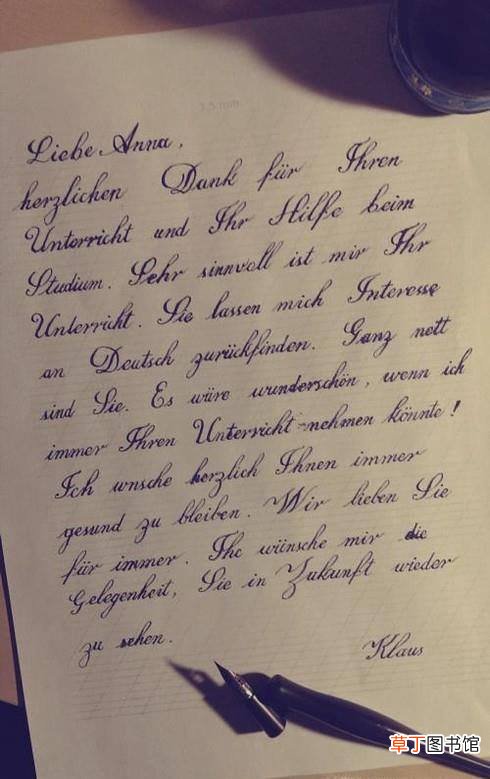 Liebe Anna,
herzlichen Dank für Ihren
Unterricht und Ihr Hilfe beim
Studium. Sehr sinnvoll ist mir Ihr
Unterricht. Sie lassen mich Interesse
an Deutsch zurückfinden. Ganz nett
sind Sie. Es wäre wunderschön, wenn ich
immer Ihren Unterricht-nehmen könnte!
Ich wnsche herzlich Ihnen immer
gesund zu bleiben. Wir lieben Sie
für immer. Ihc wünsche mir die
Gelegenheit, Sie in Zukunft wieder
zu sehen.
Klaus
草丁图书馆
www.cao